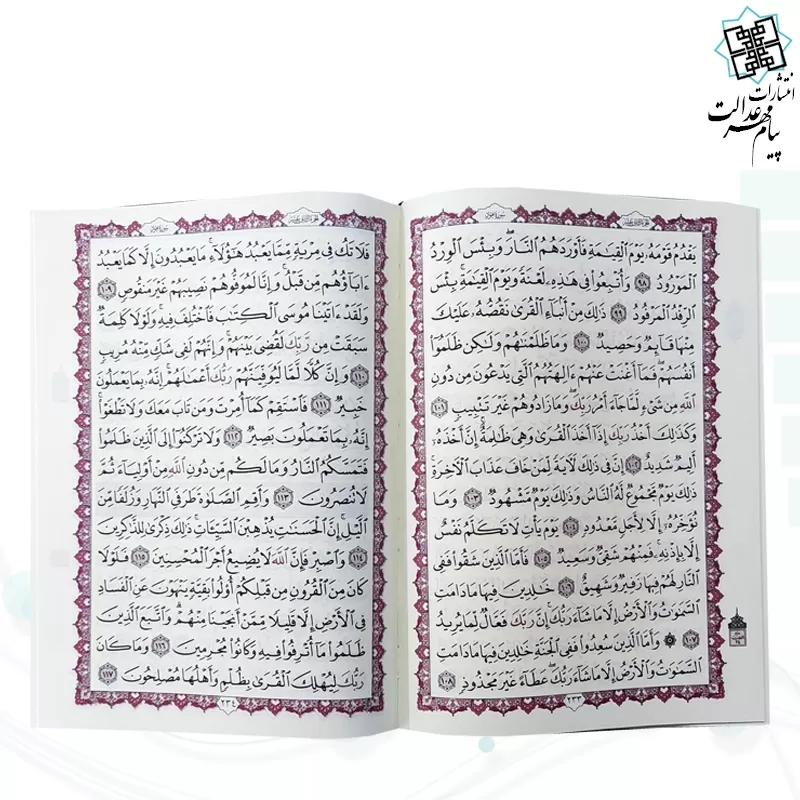 انتشارات
پیام مهر عدالت
يَقْدُمُ قَوْمَهُ، يَوْمَ الْقِيَٰمَةِ فَأَوْرَدَهُمُ النَّارَ ۖ وَبِئْسَ الْوِرْدُ
الْمَوْرُودُ ٩٨ وَأُتْبِعُوا فِي هَٰذِهِ لَعْنَةً وَيَوْمَ الْقِيَٰمَةِ ۚ بِئْسَ
الرِّفْدُ الْمَرْفُودُ ٩٩ ذَٰلِكَ مِنْ أَنْبَاءِ الْقُرَىٰ نَقُصُّهُ، عَلَيْكَ ۖ
مِنْهَا قَائِمٌ وَحَصِيدٌ ١٠٠ وَمَا ظَلَمْنَٰهُمْ وَلَٰكِن ظَلَمُوا
أَنفُسَهُمْ ۖ فَمَا أَغْنَتْ عَنْهُمْ ءَالِهَتُهُمُ الَّتِي يَدْعُونَ مِن دُونِ
اللَّهِ مِن شَيْءٍ لَّمَّا جَاءَ أَمْرُ رَبِّكَ ۖ وَمَا زَادُوهُمْ غَيْرَ تَتْبِيبٍ ١٠١
وَكَذَٰلِكَ أَخْذُ رَبِّكَ إِذَا أَخَذَ الْقُرَىٰ وَهِيَ ظَٰلِمَةٌ ۚ إِنَّ أَخْذَهُ،
أَلِيمٌ شَدِيدٌ ١٠٢ إِنَّ فِي ذَٰلِكَ لَآيَةً لِّمَنْ خَافَ عَذَابَ الْآخِرَةِ ۚ
ذَٰلِكَ يَوْمٌ مَّجْمُوعٌ لَّهُ النَّاسُ وَذَٰلِكَ يَوْمٌ مَّشْهُودٌ ١٠٣ وَمَا
نُؤَخِّرُهُ، إِلَّا لِأَجَلٍ مَّعْدُودٍ ١٠٤ يَوْمَ يَأْتِ لَا تَكَلَّمُ نَفْسٌ
إِلَّا بِإِذْنِهِ ۚ فَمِنْهُمْ شَقِيٌّ وَسَعِيدٌ ١٠٥ فَأَمَّا الَّذِينَ شَقُوا فَفِي
النَّارِ لَهُمْ فِيهَا زَفِيرٌ وَشَهِيقٌ ١٠٦ خَٰلِدِينَ فِيهَا مَا دَامَتِ
السَّمَٰوَٰتُ وَالْأَرْضُ إِلَّا مَا شَاءَ رَبُّكَ ۚ إِنَّ رَبَّكَ فَعَّالٌ لِّمَا يُرِيدُ
١٠٧ وَأَمَّا الَّذِينَ سُعِدُوا فَفِي الْجَنَّةِ خَٰلِدِينَ فِيهَا مَا دَامَتِ
السَّمَٰوَٰتُ وَالْأَرْضُ إِلَّا مَا شَاءَ رَبُّكَ ۖ عَطَاءً غَيْرَ مَجْذُوذٍ ١٠٨
٢٣٣
فَلَا تَكُ فِي مِرْيَةٍ مِّمَّا يَعْبُدُ هَٰؤُلَاءِ ۚ مَا يَعْبُدُونَ إِلَّا كَمَا يَعْبُدُ
ءَابَاؤُهُم مِّن قَبْلُ ۚ وَإِنَّا لَمُوَفُّوهُمْ نَصِيبَهُمْ غَيْرَ مَنقُوصٍ ١٠٩
وَلَقَدْ ءَاتَيْنَا مُوسَى الْكِتَٰبَ فَاخْتُلِفَ فِيهِ ۚ وَلَوْلَا كَلِمَةٌ
سَبَقَتْ مِن رَّبِّكَ لَقُضِيَ بَيْنَهُمْ ۚ وَإِنَّهُمْ لَفِي شَكٍّ مِّنْهُ مُرِيبٍ
١١٠ وَإِنَّ كُلًّا لَّمَّا لَيُوَفِّيَنَّهُمْ رَبُّكَ أَعْمَٰلَهُمْ ۚ إِنَّهُ، بِمَا يَعْمَلُونَ
خَبِيرٌ ١١١ فَاسْتَقِمْ كَمَا أُمِرْتَ وَمَن تَابَ مَعَكَ وَلَا تَطْغَوْا ۚ
إِنَّهُ، بِمَا تَعْمَلُونَ بَصِيرٌ ١١٢ وَلَا تَرْكَنُوا إِلَى الَّذِينَ ظَلَمُوا
فَتَمَسَّكُمُ النَّارُ وَمَا لَكُم مِّن دُونِ اللَّهِ مِنْ أَوْلِيَاءَ ثُمَّ
لَا تُنصَرُونَ ١١٣ وَأَقِمِ الصَّلَوٰةَ طَرَفَيِ النَّهَارِ وَزُلَفًا مِّنَ
الَّيْلِ ۚ إِنَّ الْحَسَنَٰتِ يُذْهِبْنَ السَّيِّئَاتِ ۚ ذَٰلِكَ ذِكْرَىٰ لِلذَّٰكِرِينَ
١١٤ وَاصْبِرْ فَإِنَّ اللَّهَ لَا يُضِيعُ أَجْرَ الْمُحْسِنِينَ ١١٥ فَلَوْلَا
كَانَ مِنَ الْقُرُونِ مِن قَبْلِكُمْ أُولُوا بَقِيَّةٍ يَنْهَوْنَ عَنِ الْفَسَادِ
فِي الْأَرْضِ إِلَّا قَلِيلًا مِّمَّنْ أَنجَيْنَا مِنْهُمْ ۗ وَاتَّبَعَ الَّذِينَ
ظَلَمُوا مَا أُتْرِفُوا فِيهِ وَكَانُوا مُجْرِمِينَ ١١٦ وَمَا كَانَ
رَبُّكَ لِيُهْلِكَ الْقُرَىٰ بِظُلْمٍ وَأَهْلُهَا مُصْلِحُونَ ١١٧
٢٣٤